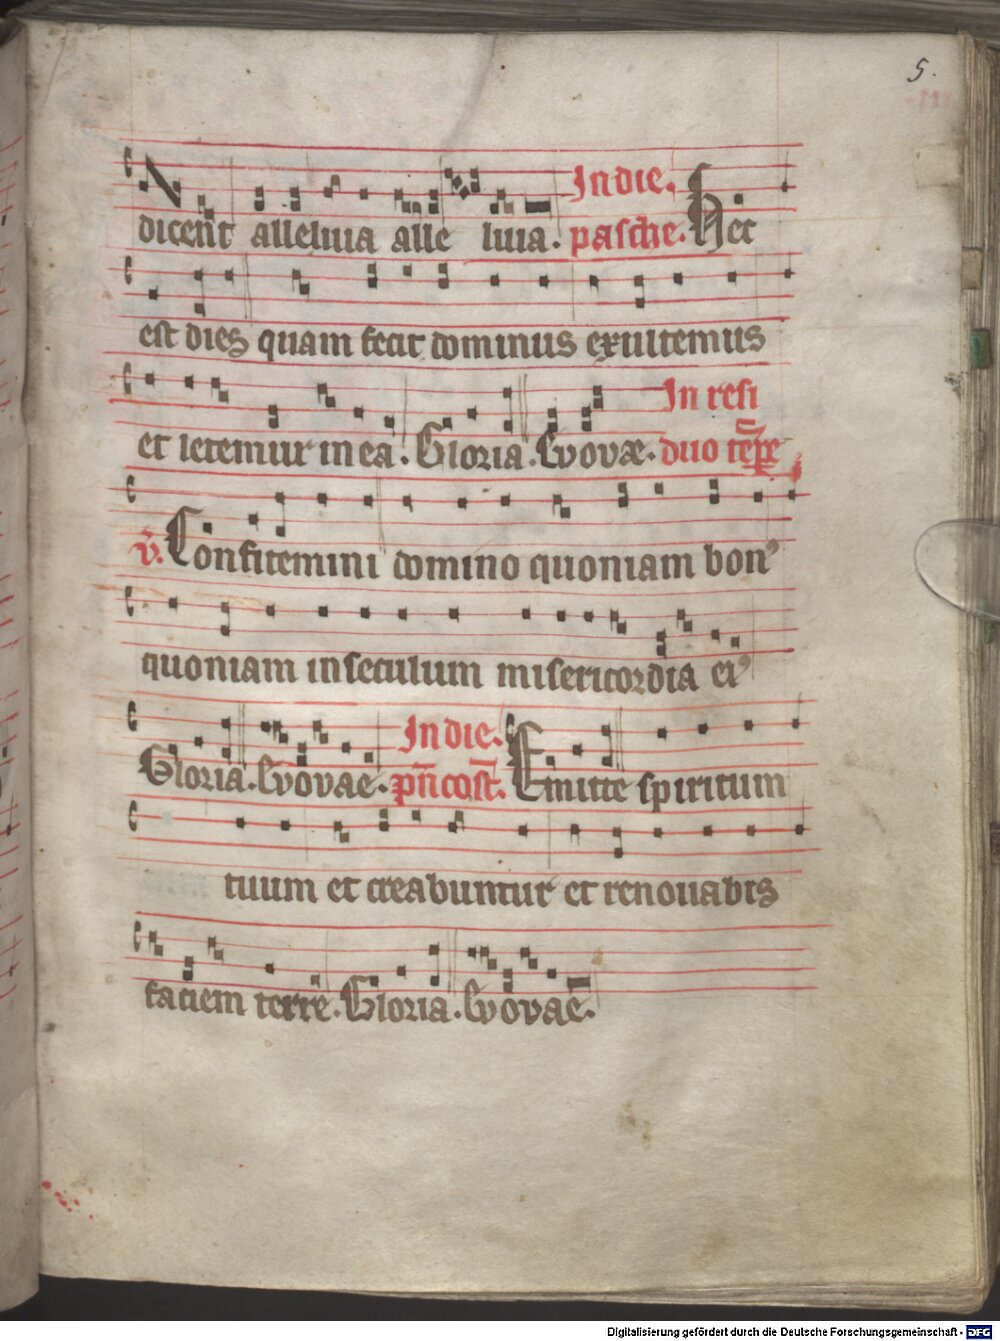 5.
In die.
dicent alleluia alle luia. pasche. Hec
est dies quam fecit dominus exultemus
In resi
et letemur in ea. Gloria. Evovae. duo tẽpe
v̄. Confitemini domino quoniam bonꝰ
quoniam in seculum misericordia eiꝰ
In die.
Gloria. Evovae. pñcost. Emitte spiritum
tuum et creabuntur et renouabis
faciem terre. Gloria. Evovae.
Digitalisierung gefördert durch die Deutsche Forschungsgemeinschaft - DFG